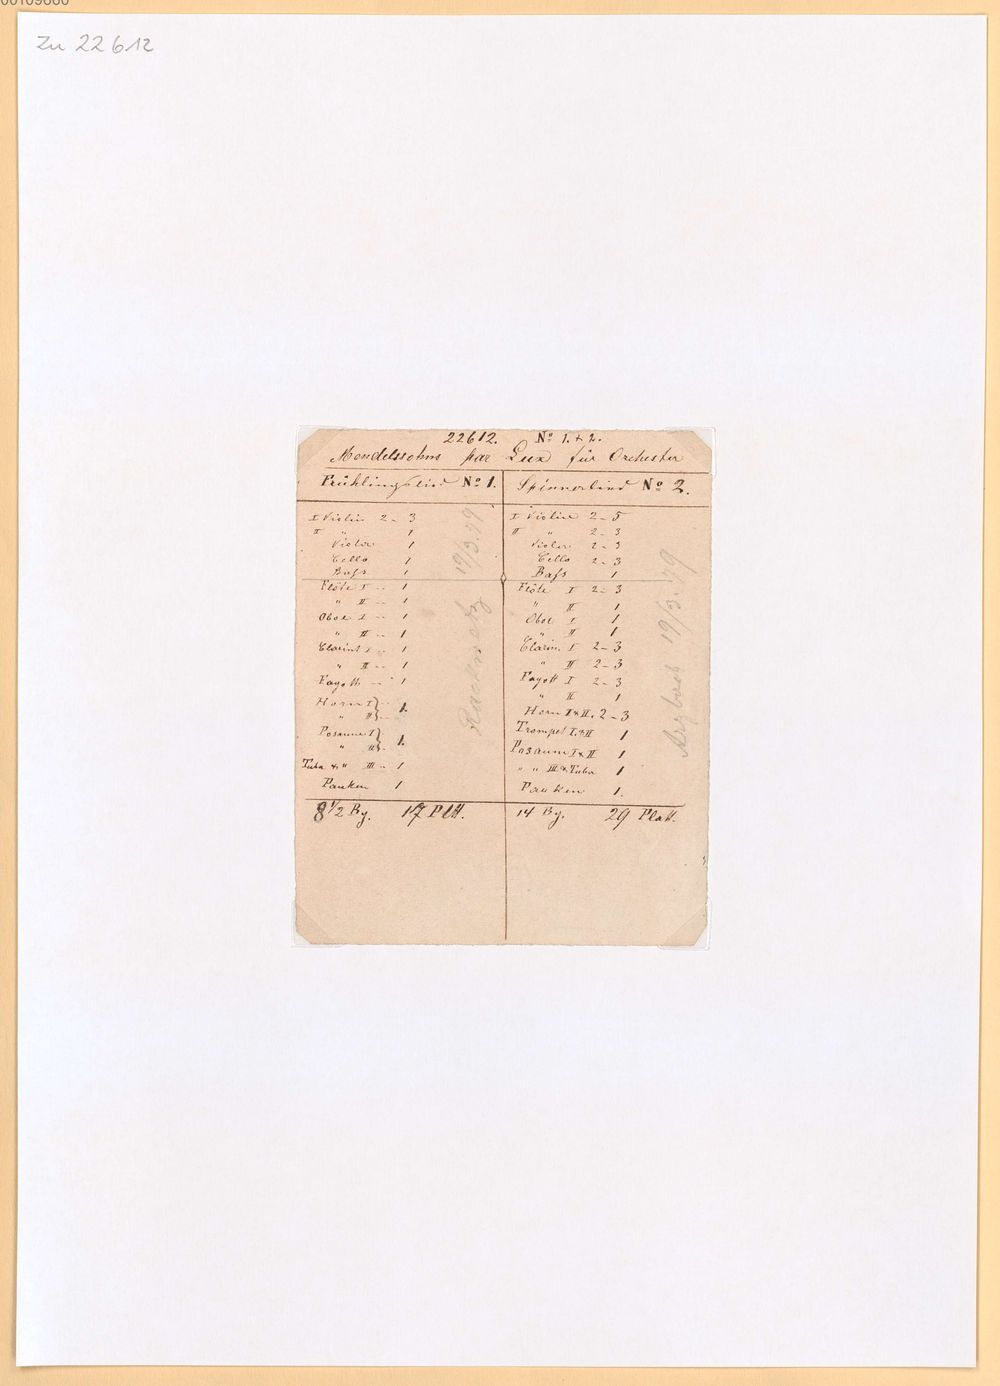 00109660
Zu 22612
22612. No 1. + 2.
Mendelssohns par Lux für Orchester
Frühlingslied No 1.
I Violin 2 - 3
II " 1
Viola 1
Cello 1
Bass 1
Flöte I -- 1
" II -- 1
Oboe I -- 1
" II -- 1
Clarinet I -- 1
" II -- 1
Fagott -- 1
Horn I } 1.
" II }
Posaune I } 1.
" II }
Tuba & " III -- 1
Pauken 1
8 1/2 Bg. 17 Platt.
19/3.79
Spinnerlied No 2.
I Violine 2 - 5
II " 2 - 3
Viola 2 - 3
Cello 2 - 3
Bass 1
Flöte I 2 - 3
" II 1
Oboe I 1
" II 1
Clarin. I 2 - 3
" II 2 - 3
Fagott I 2 - 3
" II 1
Horn I & II. 2 - 3
Trompet I. & II 1
Posaune I & II 1
" " III & Tuba 1
Pauken 1.
14 Bg. 29 Platt.
19/3.79